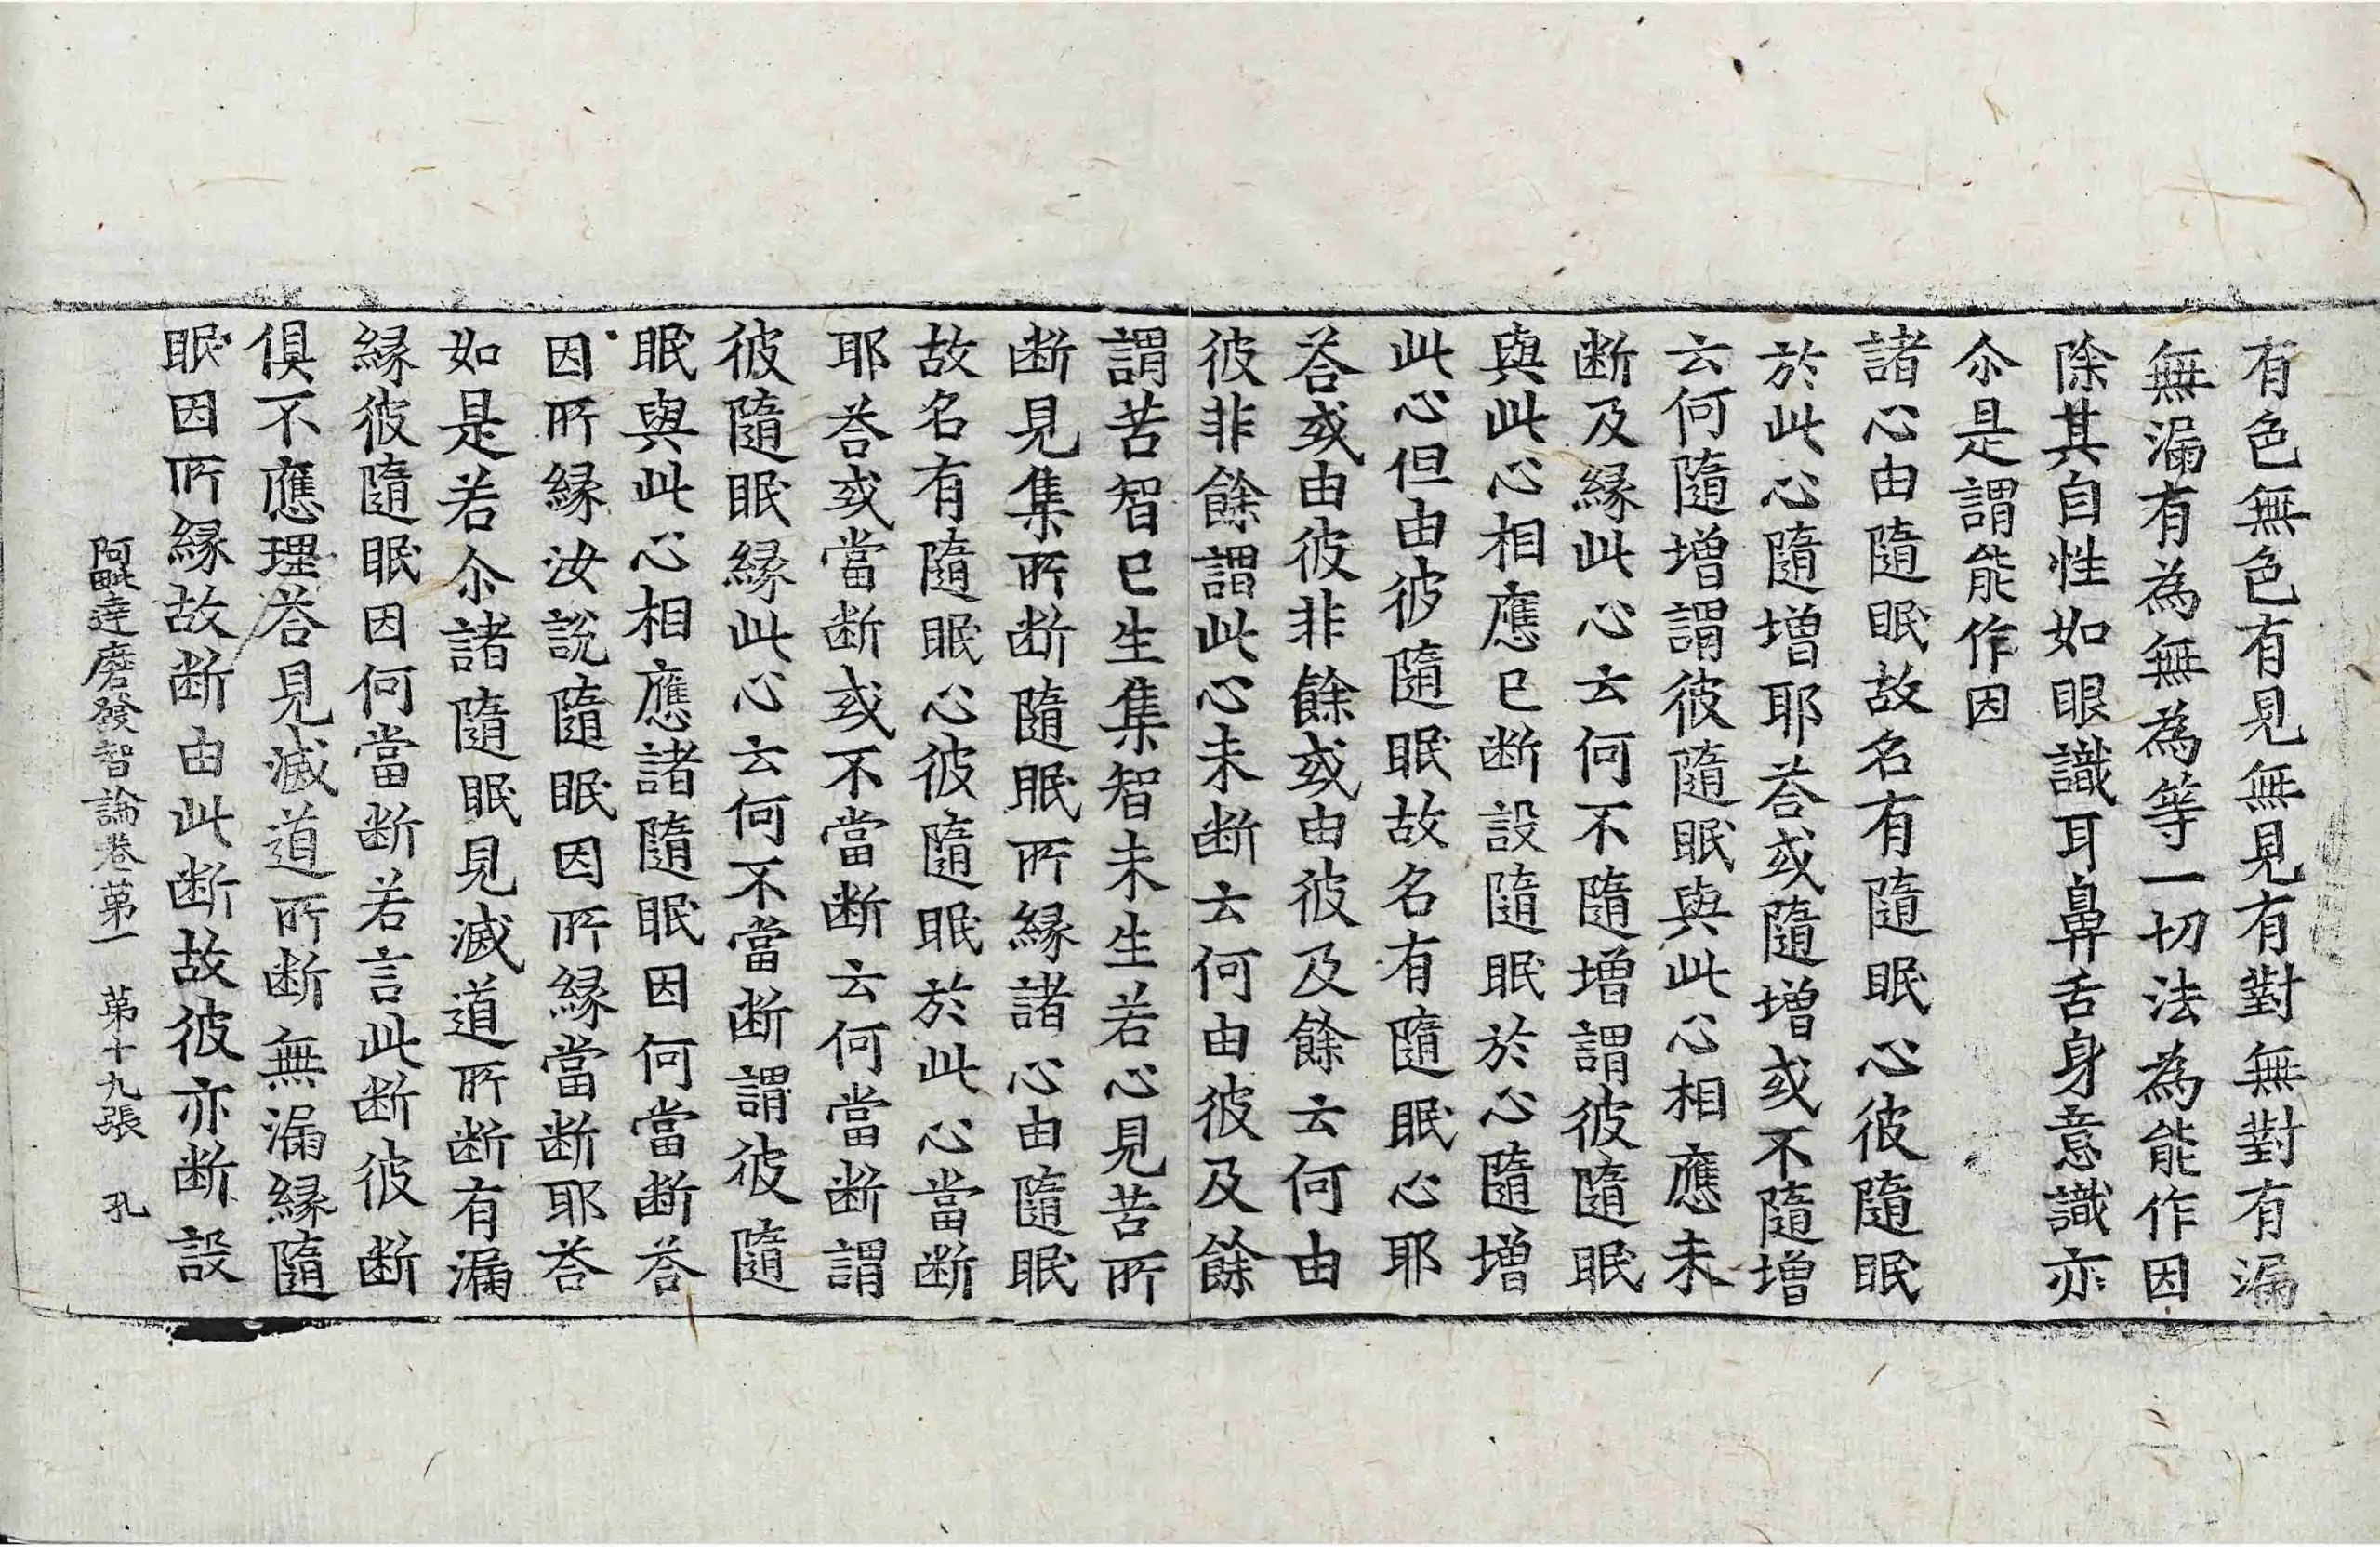 有色無色有見無見有對無對有漏
無漏有為無為等一切法為能作因
除其自性如眼識耳鼻舌身意識亦
尒是謂能作因
諸心由隨眠故名有隨眠心彼隨眠
於此心隨增耶荅或隨增或不隨增
云何隨增謂彼隨眠與此心相應未
断及縁此心云何不隨增謂彼隨眠
與此心相應已断設隨眠於心隨增
此心但由彼隨眠故名有隨眠心耶
荅或由彼非餘或由彼及餘云何由
彼非餘謂此心未断云何由彼及餘
謂苦智已生集智未生若心見苦所
断見集所断隨眠所縁諸心由隨眠
故名有隨眠心彼隨眠於此心當断
耶荅或當断或不當断云何當断謂
彼隨眠縁此心云何不當断謂彼隨
眠與此心相應諸隨眠因何當断荅
因所縁汝說隨眠因所縁當断耶荅
如是若尒諸隨眠見滅道所断有漏
縁彼隨眠因何當断若言此断彼断
俱不應理荅見滅道所断無漏縁隨
眠因所縁故断由此断故彼亦断設
阿毗達磨發智論卷第一 第十九張 孔